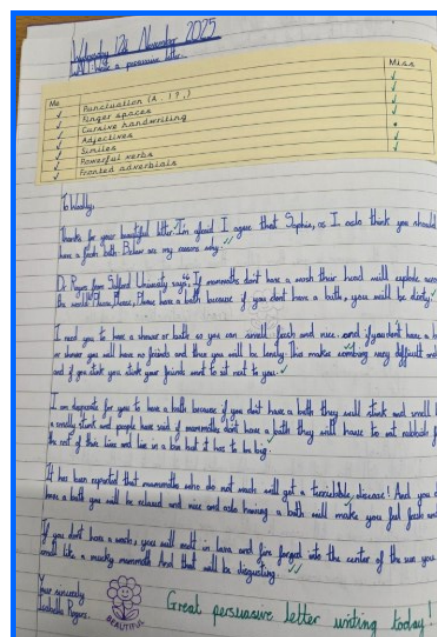 Wednesday 12th November 2025
LO: I write a persuasive letter.
Me Miss
Punctuation (A . ! ? ,)
Finger spaces
Cursive handwriting
Adjectives
Similes
Powerful verbs
Fronted adverbials
To Woolly,
Thanks for your beautiful letter. I'm afraid I agree that Sophie, as I also think you should
have a fresh bath. Below are my reasons why:
Dr Rogers from Salford University says, "If mammoths don't have a wash their head will explode
the world." Please, Please, Please have a bath because if you dont have a bath, you will be dirty.
I need you to have a shower or bath so you can smell fresh and nice and if you dont have a
or shower you will have no friends and then you will be lonely. This makes very difficult
and if you stink you stink your friends wont to sit next to you.
I am desperate for you to have a bath because if you dont have a bath they will stink and smell
a smelly stink and people have said if mammoths dont have a bath they will have to eat rubbish
the rest of their live and live in a bin but it has to be big.
It has been reported that mammoths who do not wash will get a disease! And you
have a bath you will be relaxed and nice and also having a bath will make you feel fresh
If you dont have a wash, you will melt in lava and fire forged into the center of the sun you
smell like a mucky mammoth And that will be disgusting.
Your sincerely
Rogers.
BEAUTIFUL
Great persuasive letter writing today!